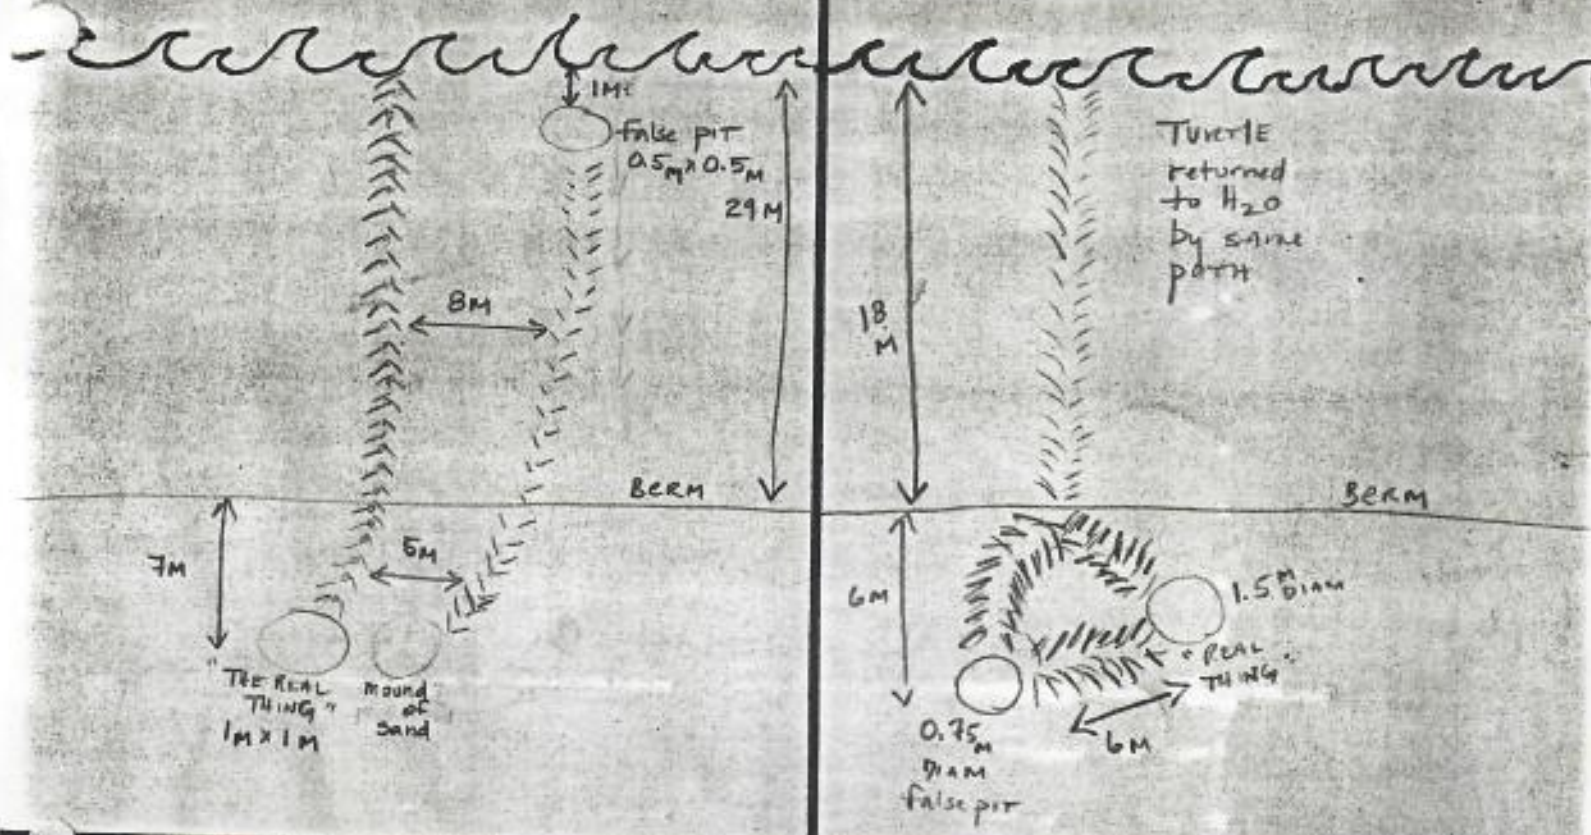 1M±
False pit
0.5M x 0.5M
29M
8M
BERM
7M
5M
"THE REAL
THING"
1M x 1M
mound
of
sand
Turtle
returned
to H2O
by same
path
18
M
BERM
6M
1.5M
DIAM
"REAL
THING"
6M
0.75M
DIAM
false pit